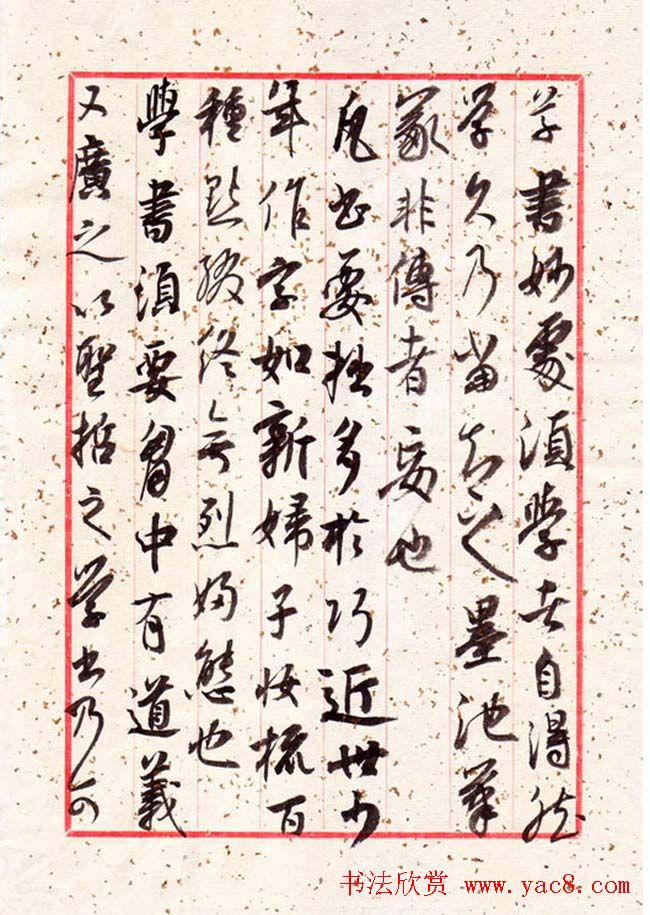 草書妙處須學者自得然
学久乃當知之墨池筆
冢非傳者妄也
凡書要拙多於巧近世少
年作字如新婦子妝梳百
種點綴終無烈婦態也
學書須要胷中有道義
又廣之以聖哲之学書乃可
书法欣赏 www.yac8.com